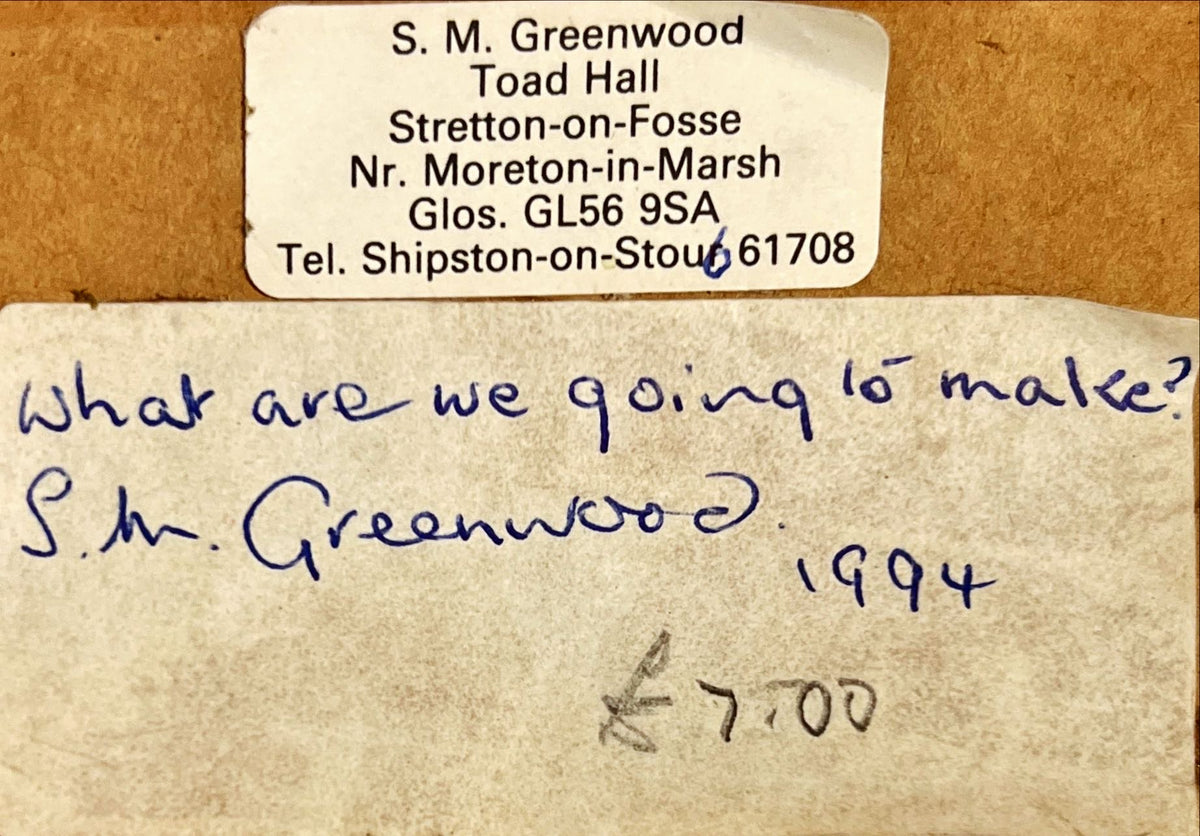 S. M. Greenwood
Toad Hall
Stretton-on-Fosse
Nr. Moreton-in-Marsh
Glos. GL56 9SA
Tel. Shipston-on-Stour 661708
What are we going to make?
S. M. Greenwood.
1994
£7.00